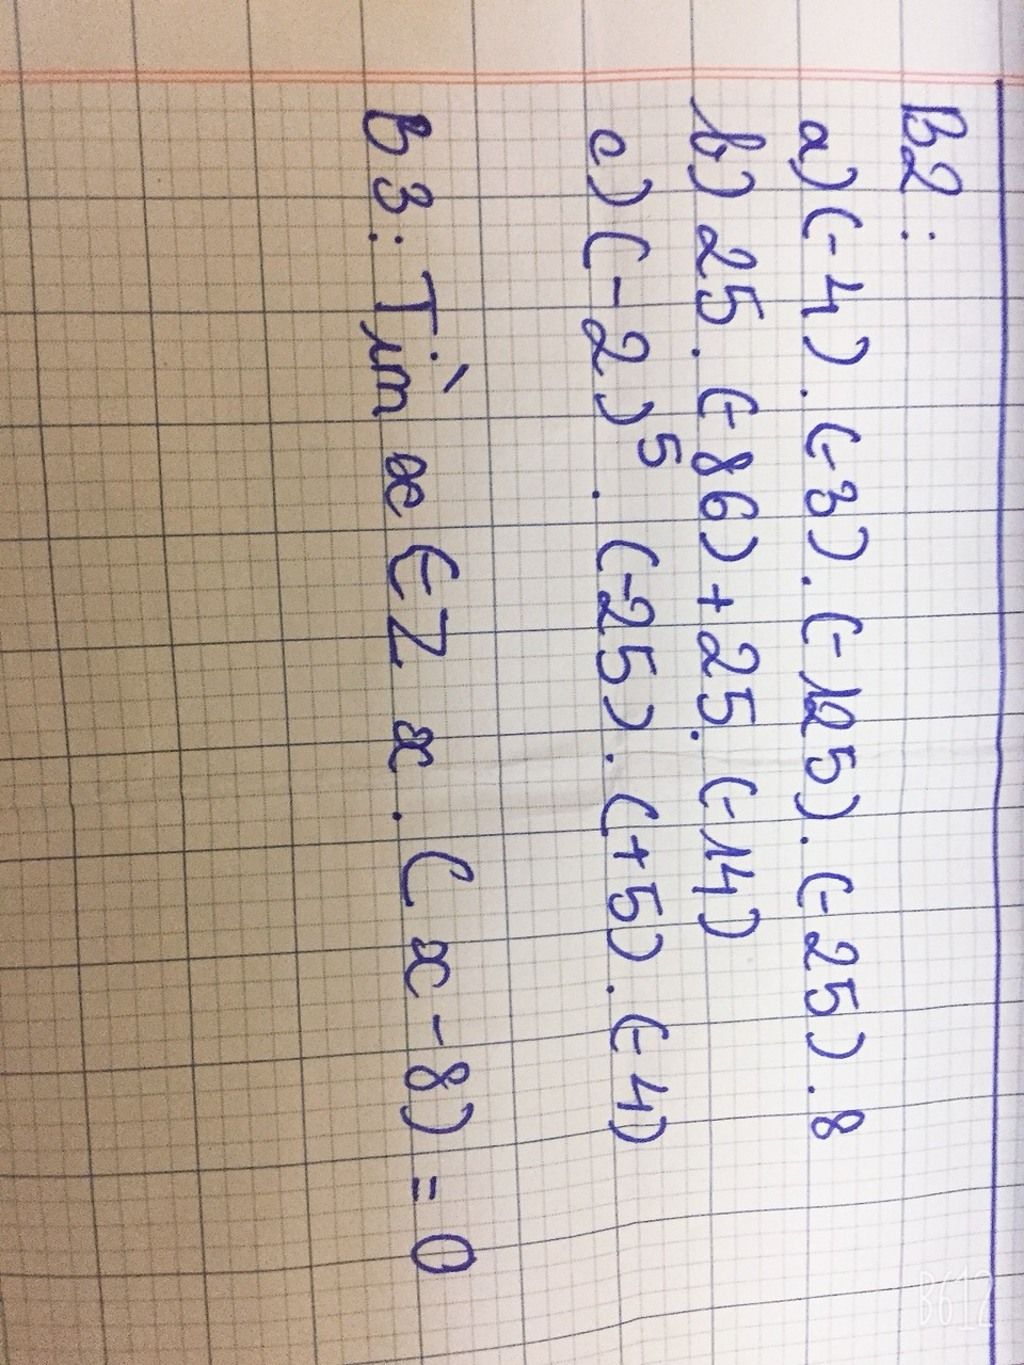 B2:
a) (-4) . (-3) . (-125) . (-25) . 8
b) 25 . (-86) + 25 . (-14)
c) (-2)⁵ . (-25) . (+5) . (-4)
B3: Tìm x ∈ Z x . (x - 8) = 0
B612